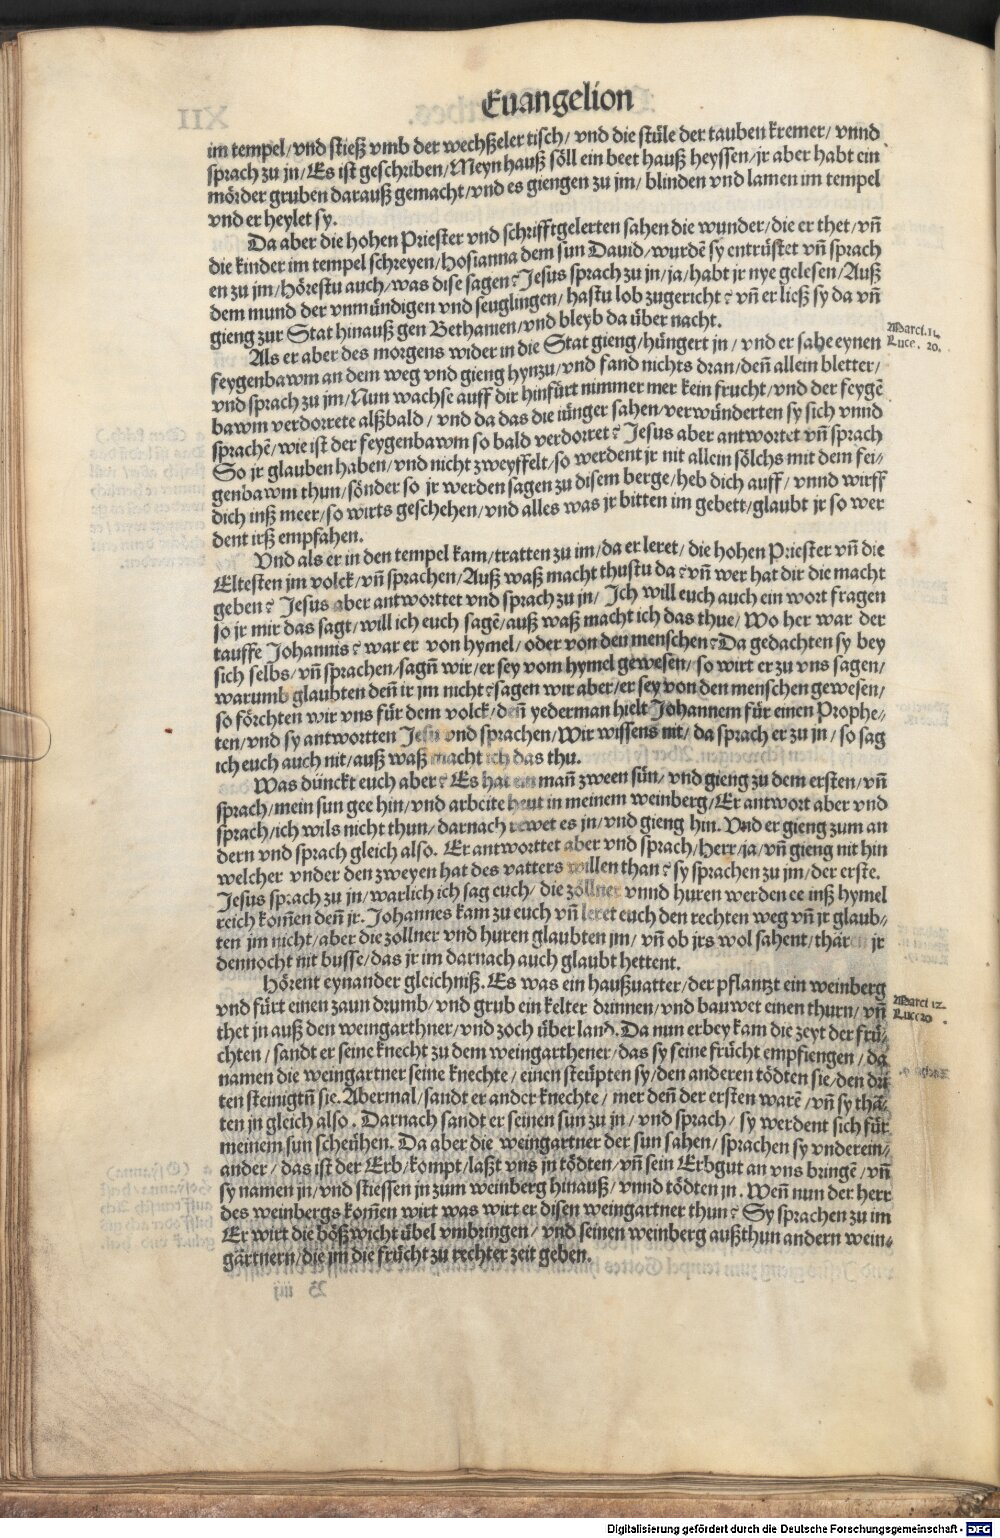 Euangelion
im tempel/vnd stieß vmb der wechßeler tisch/ vnd die stüle der tauben kremer/ vnnd
sprach zu jn/Es ist geschriben/Meyn hauß söll ein beet hauß heyssen/jr aber habt ein
mörder gruben darauß gemacht/vnd es giengen zu jm/ blinden vnd lamen im tempel
vnd er heylet sy.
Da aber die hohen Priester vnd schrifftgelerten sahen die wunder/die er thet/vn̄
die kinder im tempel schreyen/Hosianna dem sun Dauid/wurdē sy entrüstet vn̄ sprach
en zu jm/Hörestu auch/was dise sagen? Jesus sprach zu jn/ja/habt jr nye gelesen/Auß
dem mund der vnmündigen vnd seuglingen/hastu lob zugericht? vn̄ er ließ sy da vn̄
gieng zur Stat hinauß gen Bethanien/vnd bleyb da über nacht.
Als er aber des morgens wider in die Stat gieng/hüngert jn/ vnd er sahe eynen
Marci. 11.
Luce. 20.
feygenbawm an dem weg vnd gieng hynzu/vnd fand nichts dran/den̄ allein bletter/
vnd sprach zu jm/Nun wachse auff dir hinfürt nimmer mer kein frucht/vnd der feygē
bawm verdorrete alßbald/ vnd da das die iünger sahen/verwünderten sy sich vnnd
sprachē/wie ist der feygenbawm so bald verdorret? Jesus aber antwortet vn̄ sprach
So jr glauben haben/vnd nicht zweyffelt/so werdent jr nit allein sölchs mit dem fei⸗
genbawm thun/sönder so jr werden sagen zu disem berge/heb dich auff/ vnnd wirff
dich inß meer/so wirts geschehen/vnd alles was jr bitten im gebett/glaubt jr so wer
dent irß empfahen.
Vnd als er in den tempel kam/tratten zu im/da er leret/ die hohen Priester vn̄ die
Eltesten jm volck/vn̄ sprachen/Auß waß macht thustu da? vn̄ wer hat dir die macht
geben? Jesus aber antworttet vnd sprach zu jn/ Ich will euch auch ein wort fragen
so jr mir das sagt/will ich euch sagē/auß waß macht ich das thue/Wo her war der
tauffe Johannis? war er von hymel/oder von den menschen? Da gedachten sy bey
sich selbs/vn̄ sprachen/sagn̄ wir/er sey vom hymel gewesen/so wirt er zu vns sagen/
warumb glaubten den̄ ir jm nicht? sagen wir aber/er sey von den menschen gewesen/
so förchten wir vns für dem volck/den̄ yederman hielt Johannem für einen Prophe⸗
ten/vnd sy antwortten Jesu vnd sprachen/Wir wissens nit/da sprach er zu jn/so sag
ich euch auch nit/auß waß macht ich das thu.
Was dünckt euch aber? Es hat ein man̄ zween sün/vnd gieng zu dem ersten/vn̄
sprach/mein sun gee hin/vnd arbeite heut in meinem weinberg/Er antwort aber vnd
sprach/ich wils nicht thun/darnach rewet es jn/vnd gieng hin. Vnd er gieng zum an
dern vnd sprach gleich also. Er antworttet aber vnd sprach/Herr/ja/vn̄ gieng nit hin
welcher vnder den zweyen hat des vatters willen than? sy sprachen zu jm/der erste.
Jesus sprach zu jn/warlich ich sag euch/ die zöllner vnnd huren werden ee inß hymel
reich kom̄en den̄ jr. Johannes kam zu euch vn̄ leret euch den rechten weg vn̄ jr glaub⸗
ten jm nicht/aber die zöllner vnd huren glaubten jm/ vn̄ ob jrs wol sahent/thären jr
dennocht nit busse/das jr im darnach auch glaubt hettent.
Hörent eynander gleichniß. Es was ein haußuatter/der pflantzt ein weinberg
Marci 12.
Luce 20
vnd fürt einen zaun drumb/vnd grub ein kelter drinnen/vnd bauwet einen thurn/vn̄
thet jn auß den weingarthner/vnd zoch über land. Da nun erbey kam die zeyt der frü⸗
chten/ sandt er seine knecht zu dem weingarthener/das sy seine frücht empfiengen/da
namen die weingartner seine knechte/ einen steüpten sy/den anderen tödten sie/den drit
ten steinigtn̄ sie. Abermal/sandt er ander knechte/ mer den̄ der ersten warē/vn̄ sy thä⸗
ten jn gleich also. Darnach sandt er seinen sun zu jn/ vnd sprach/ sy werdent sich für
meinem sun scheühen. Da aber die weingartner der sun sahen/sprachen sy vnderein⸗
ander/das ist der Erb/kompt/laßt vns jn tödten/vn̄ sein Erbgut an vns bringē/vn̄
sy namen jn/vnd stiessen jn zum weinberg hinauß/vnnd tödten jn. Wen̄ nun der herr
des weinbergs kom̄en wirt was wirt er disen weingartner thun? Sy sprachen zu im
Er wirt die bößwicht übel vmbringen/ vnd seinen weinberg außthun andern wein⸗
gärtnern/die jm die frücht zu rechter zeit geben.
Digitalisierung gefördert durch die Deutsche Forschungsgemeinschaft - DFG